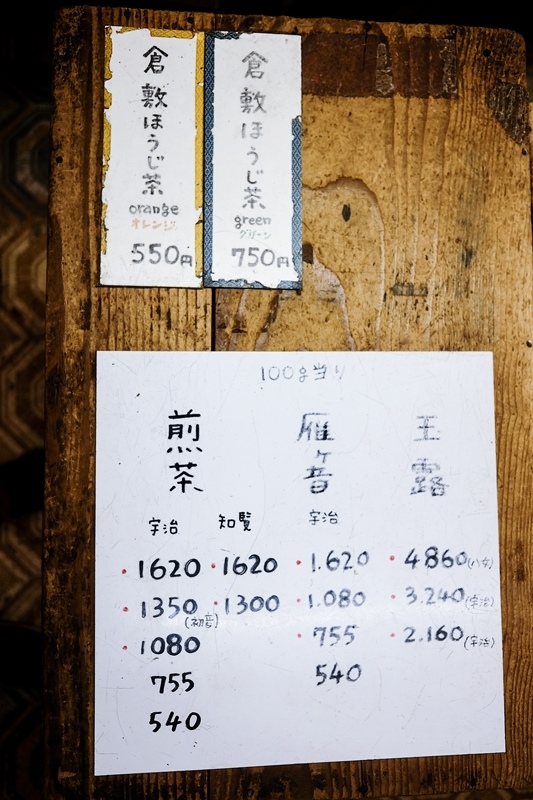 倉敷ほうじ茶
orange
オレンジ
550円
倉敷ほうじ茶
green
グリーン
750円
100g当り
煎茶
宇治 知覧
・1620 ・1620
・1350 ・1300
(初音)
・1080
755
540
雁ヶ音
宇治
・1.620
・1.080
・755
540
玉露
・4860(八女)
・3.240(宇治)
・2.160(宇治)